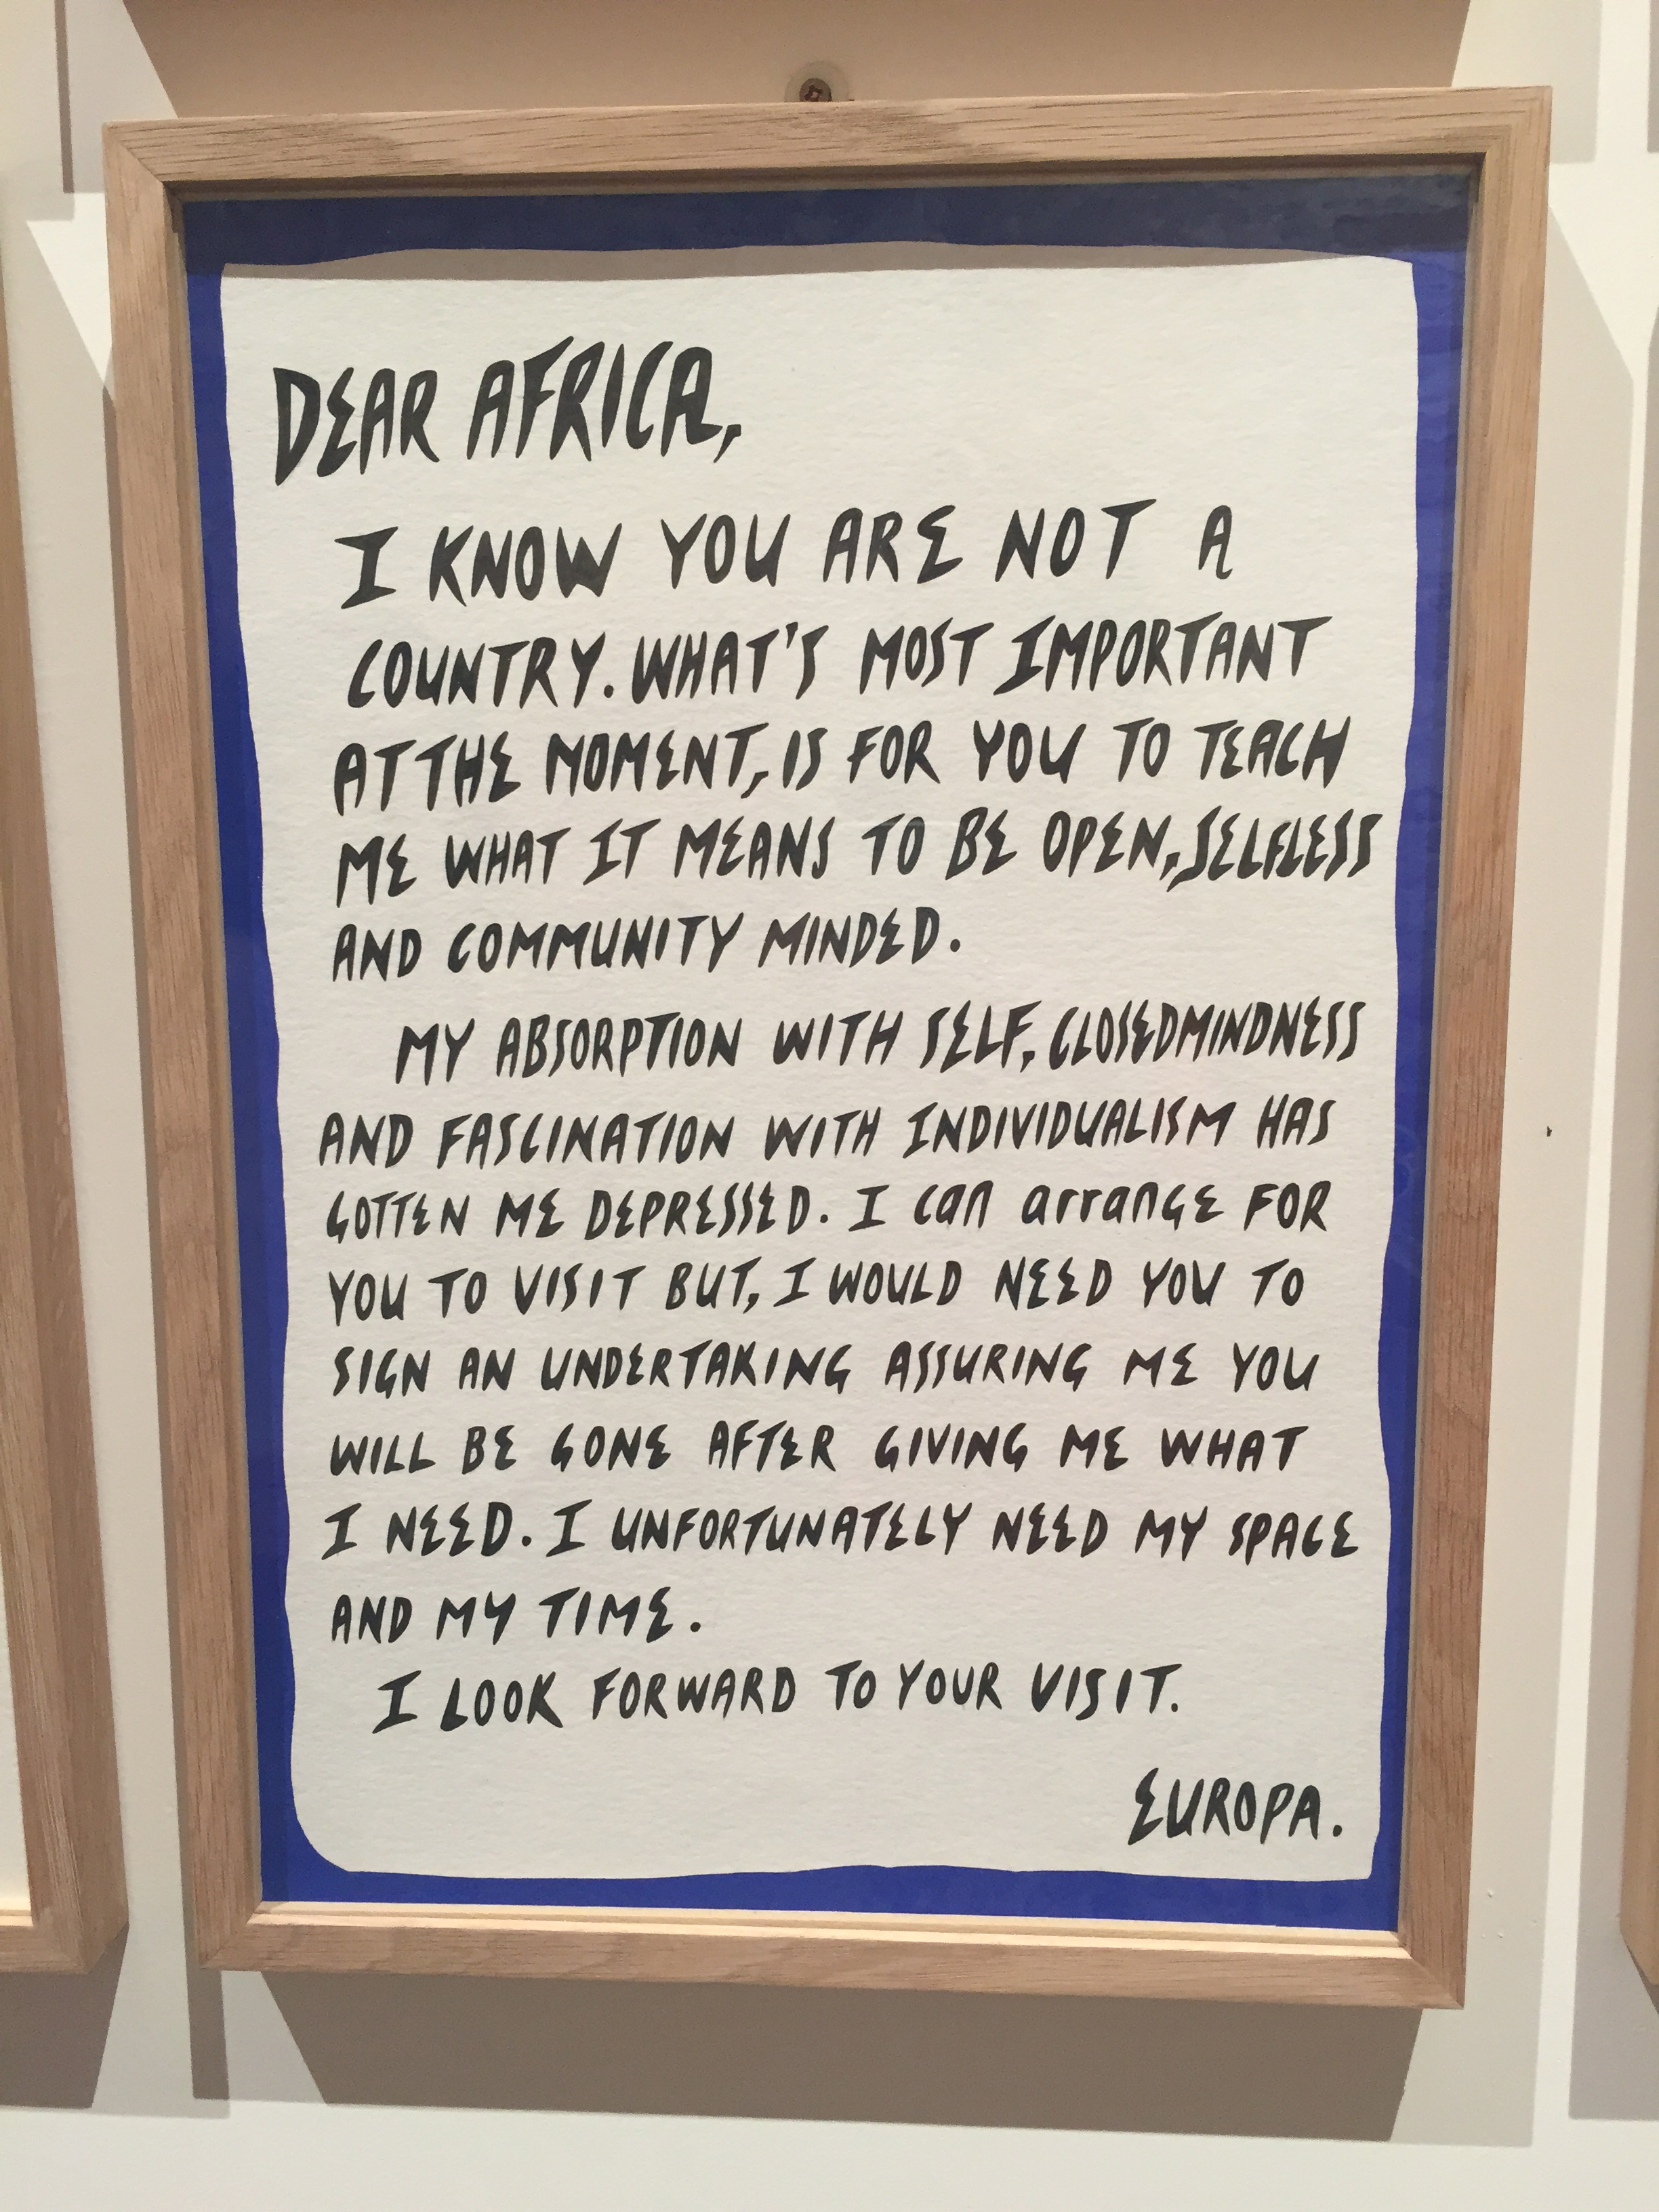 DEAR AFRICA,
I KNOW YOU ARE NOT A
COUNTRY. WHAT'S MOST IMPORTANT
AT THE MOMENT, IS FOR YOU TO TEACH
ME WHAT IT MEANS TO BE OPEN, SELFLESS
AND COMMUNITY MINDED.
MY ABSORPTION WITH SELF, CLOSEDMINDNESS
AND FASCINATION WITH INDIVIDUALISM HAS
GOTTEN ME DEPRESSED. I can arrangE FOR
YOU TO VISIT BUT, I WOULD NEED YOU TO
SIGN AN UNDERTAKING ASSURING ME YOU
WILL BE GONE AFTER GIVING ME WHAT
I NEED. I UNFORTUNATELY NEED MY SPACE
AND MY TIME.
I LOOK FORWARD TO YOUR VISIT.
EUROPA.